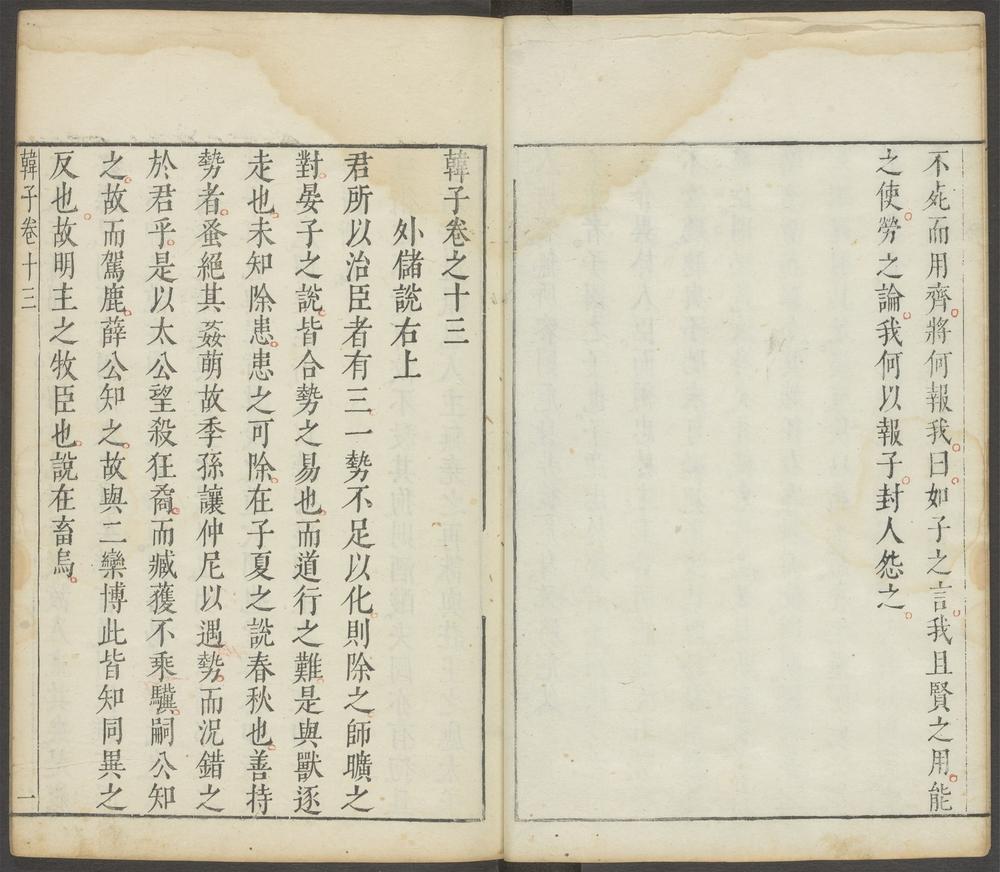 不死而用齊將何報我曰如子之言我且賢之用能
之使勞之論我何以報子封人怨之
韓子卷之十三
外儲說右上
君所以治臣者有三一勢不足以化則除之師曠之
對晏子之說皆合勢之易也而道行之難是與獸逐
走也未知除患患之可除在子夏之說春秋也善持
勢者蚤絕其姦萌故季孫讓仲尼以遇勢而況錯之
於君乎是以太公望殺狂矞而臧獲不乘驥嗣公知
之故而駕鹿薛公知之故與二欒博此皆知同異之
反也故明主之牧臣也說在畜烏
韓子卷十三
一